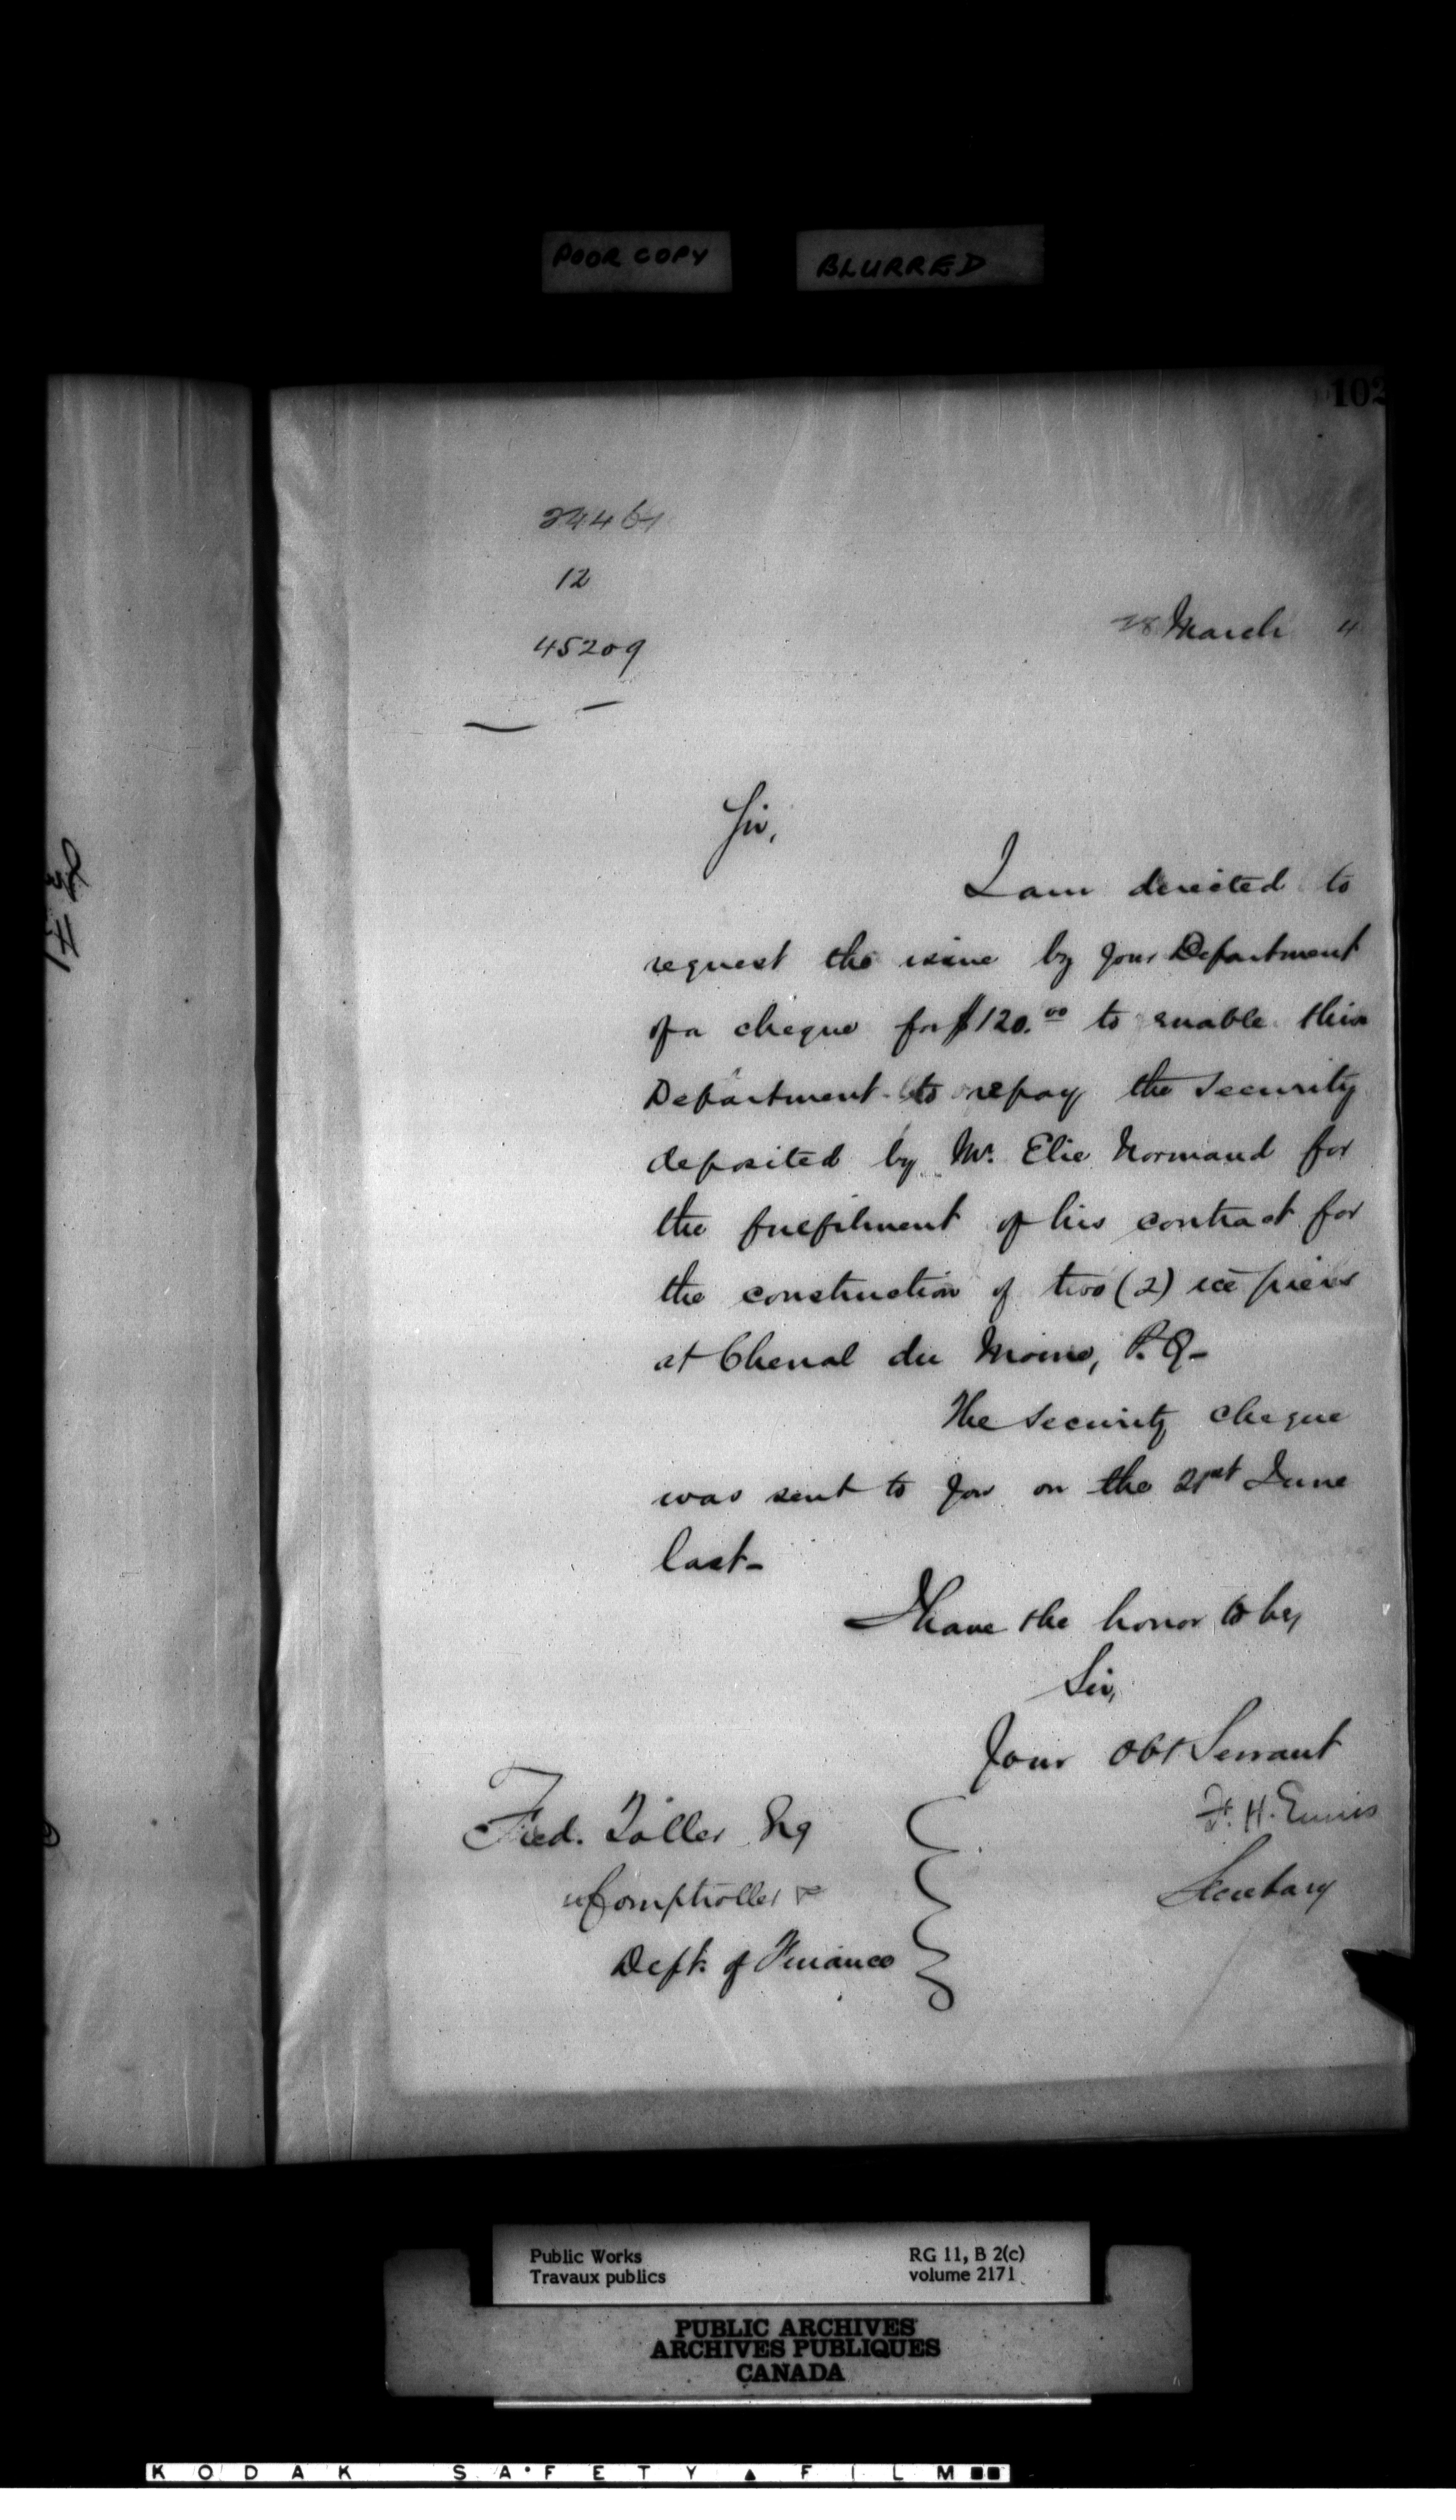 POOR COPY BLURRED
102
12
45209
28 March 4
Sir,
I am directed to
request the issue by your Department
of a cheque for $120.00 to enable this
Department to repay the security
deposited by Mr. Elie Normand for
the fulfilment of his contract for
the construction of two (2) ice piers
at Chenal du Moine, P.Q-
The security cheque
was sent to you on the 21st June
last-
I have the honor to be,
Sir,
Your Obt Servant
F. H. Ennis
Secretary
Fred. Toller Esq
Comptroller
Dept. of Finance
Public Works
Travaux publics
RG 11, B 2(c)
volume 2171
PUBLIC ARCHIVES
ARCHIVES PUBLIQUES
CANADA
KODAK SAFETY FILM